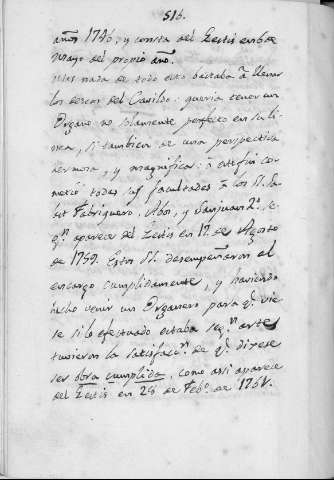 516.
años 1746, y consta del Lectis en 6 de
Mayo del propio año.
Mas nada de todo esto bastaba â llenar
los deseos del Cavildo: queria tener un
Organo no solamente perfecto en su li-
nea, si tambien de una perspectiva
hermosa, y magnifica: â este fin co-
metiò todas sus facultades â los SS.
Fabriquero, Abos, y Sanjuan 2º,
qⁿ aparece del Lectis en 17 de Agosto
de 1759. Estos SS. desempeñaron el
encargo cumplidamente, y haviendo
hecho venir un Organero para q̃ vie-
se si lo efectuado estaba segⁿ arte
tuvieron la satisfacⁿ de q̃ dixese
ser obra cumplida, como assi aparece
del Lectis en 28 de Febº de 1761.